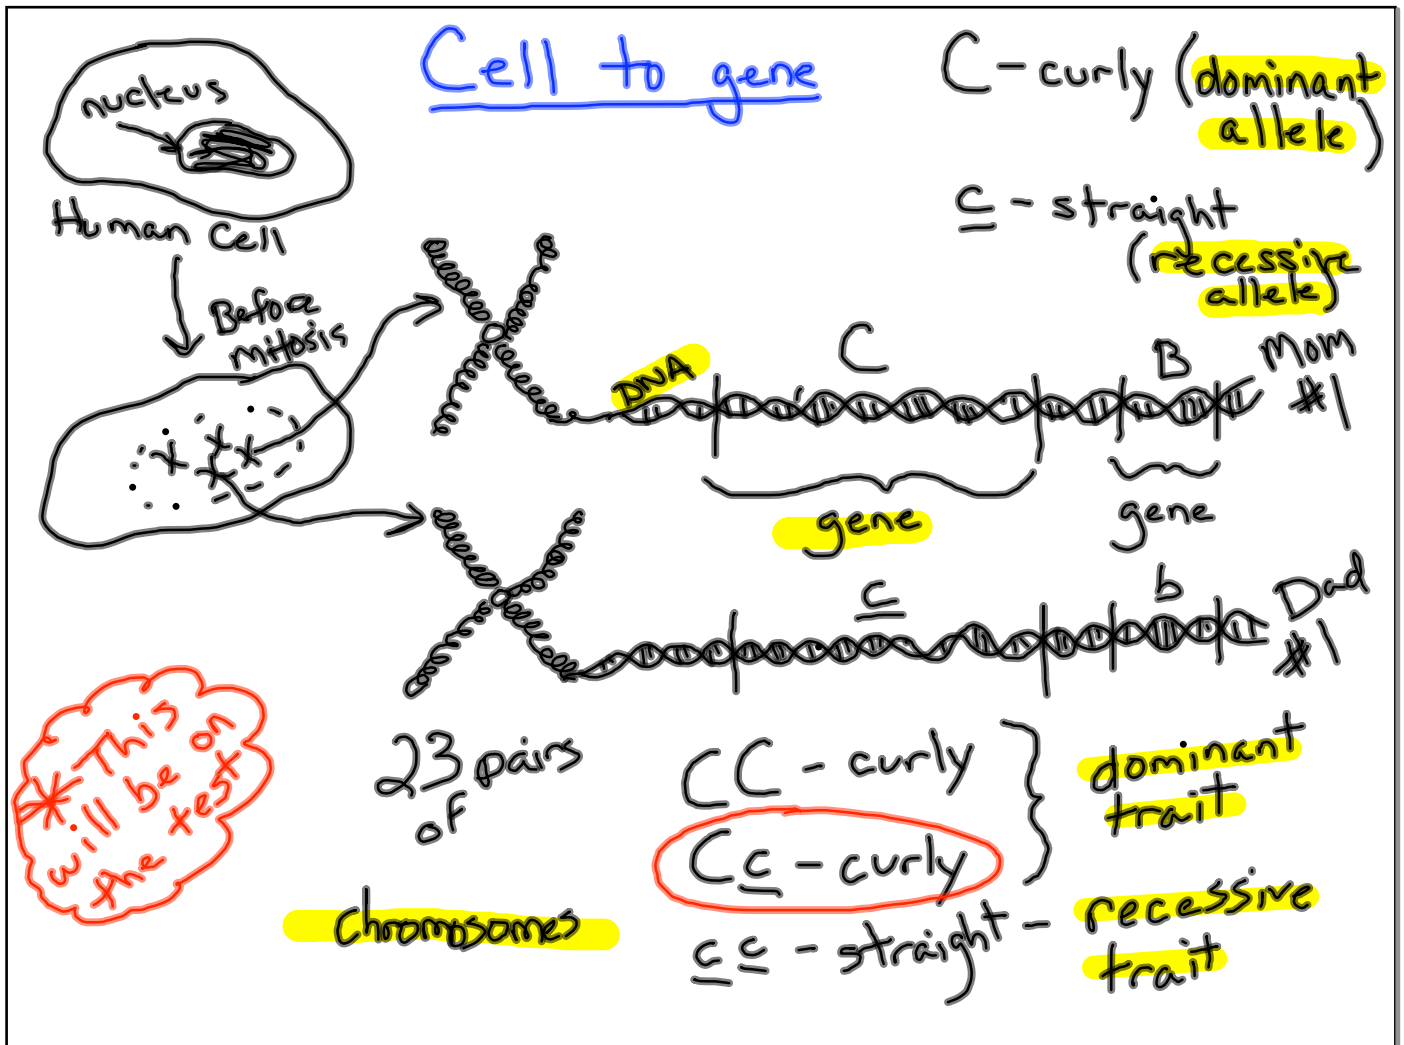 Cell to gene
nucleus
Human Cell
Before
mitosis
C - curly (dominant
allele)
c - straight
(recessive
allele)
DNA
C
B
Mom
#1
gene
gene
c
b
Dad
#1
* This
will be on
the test
23 pairs
of
Chromosomes
CC - curly
Cc - curly
cc - straight - recessive
trait
dominant
trait